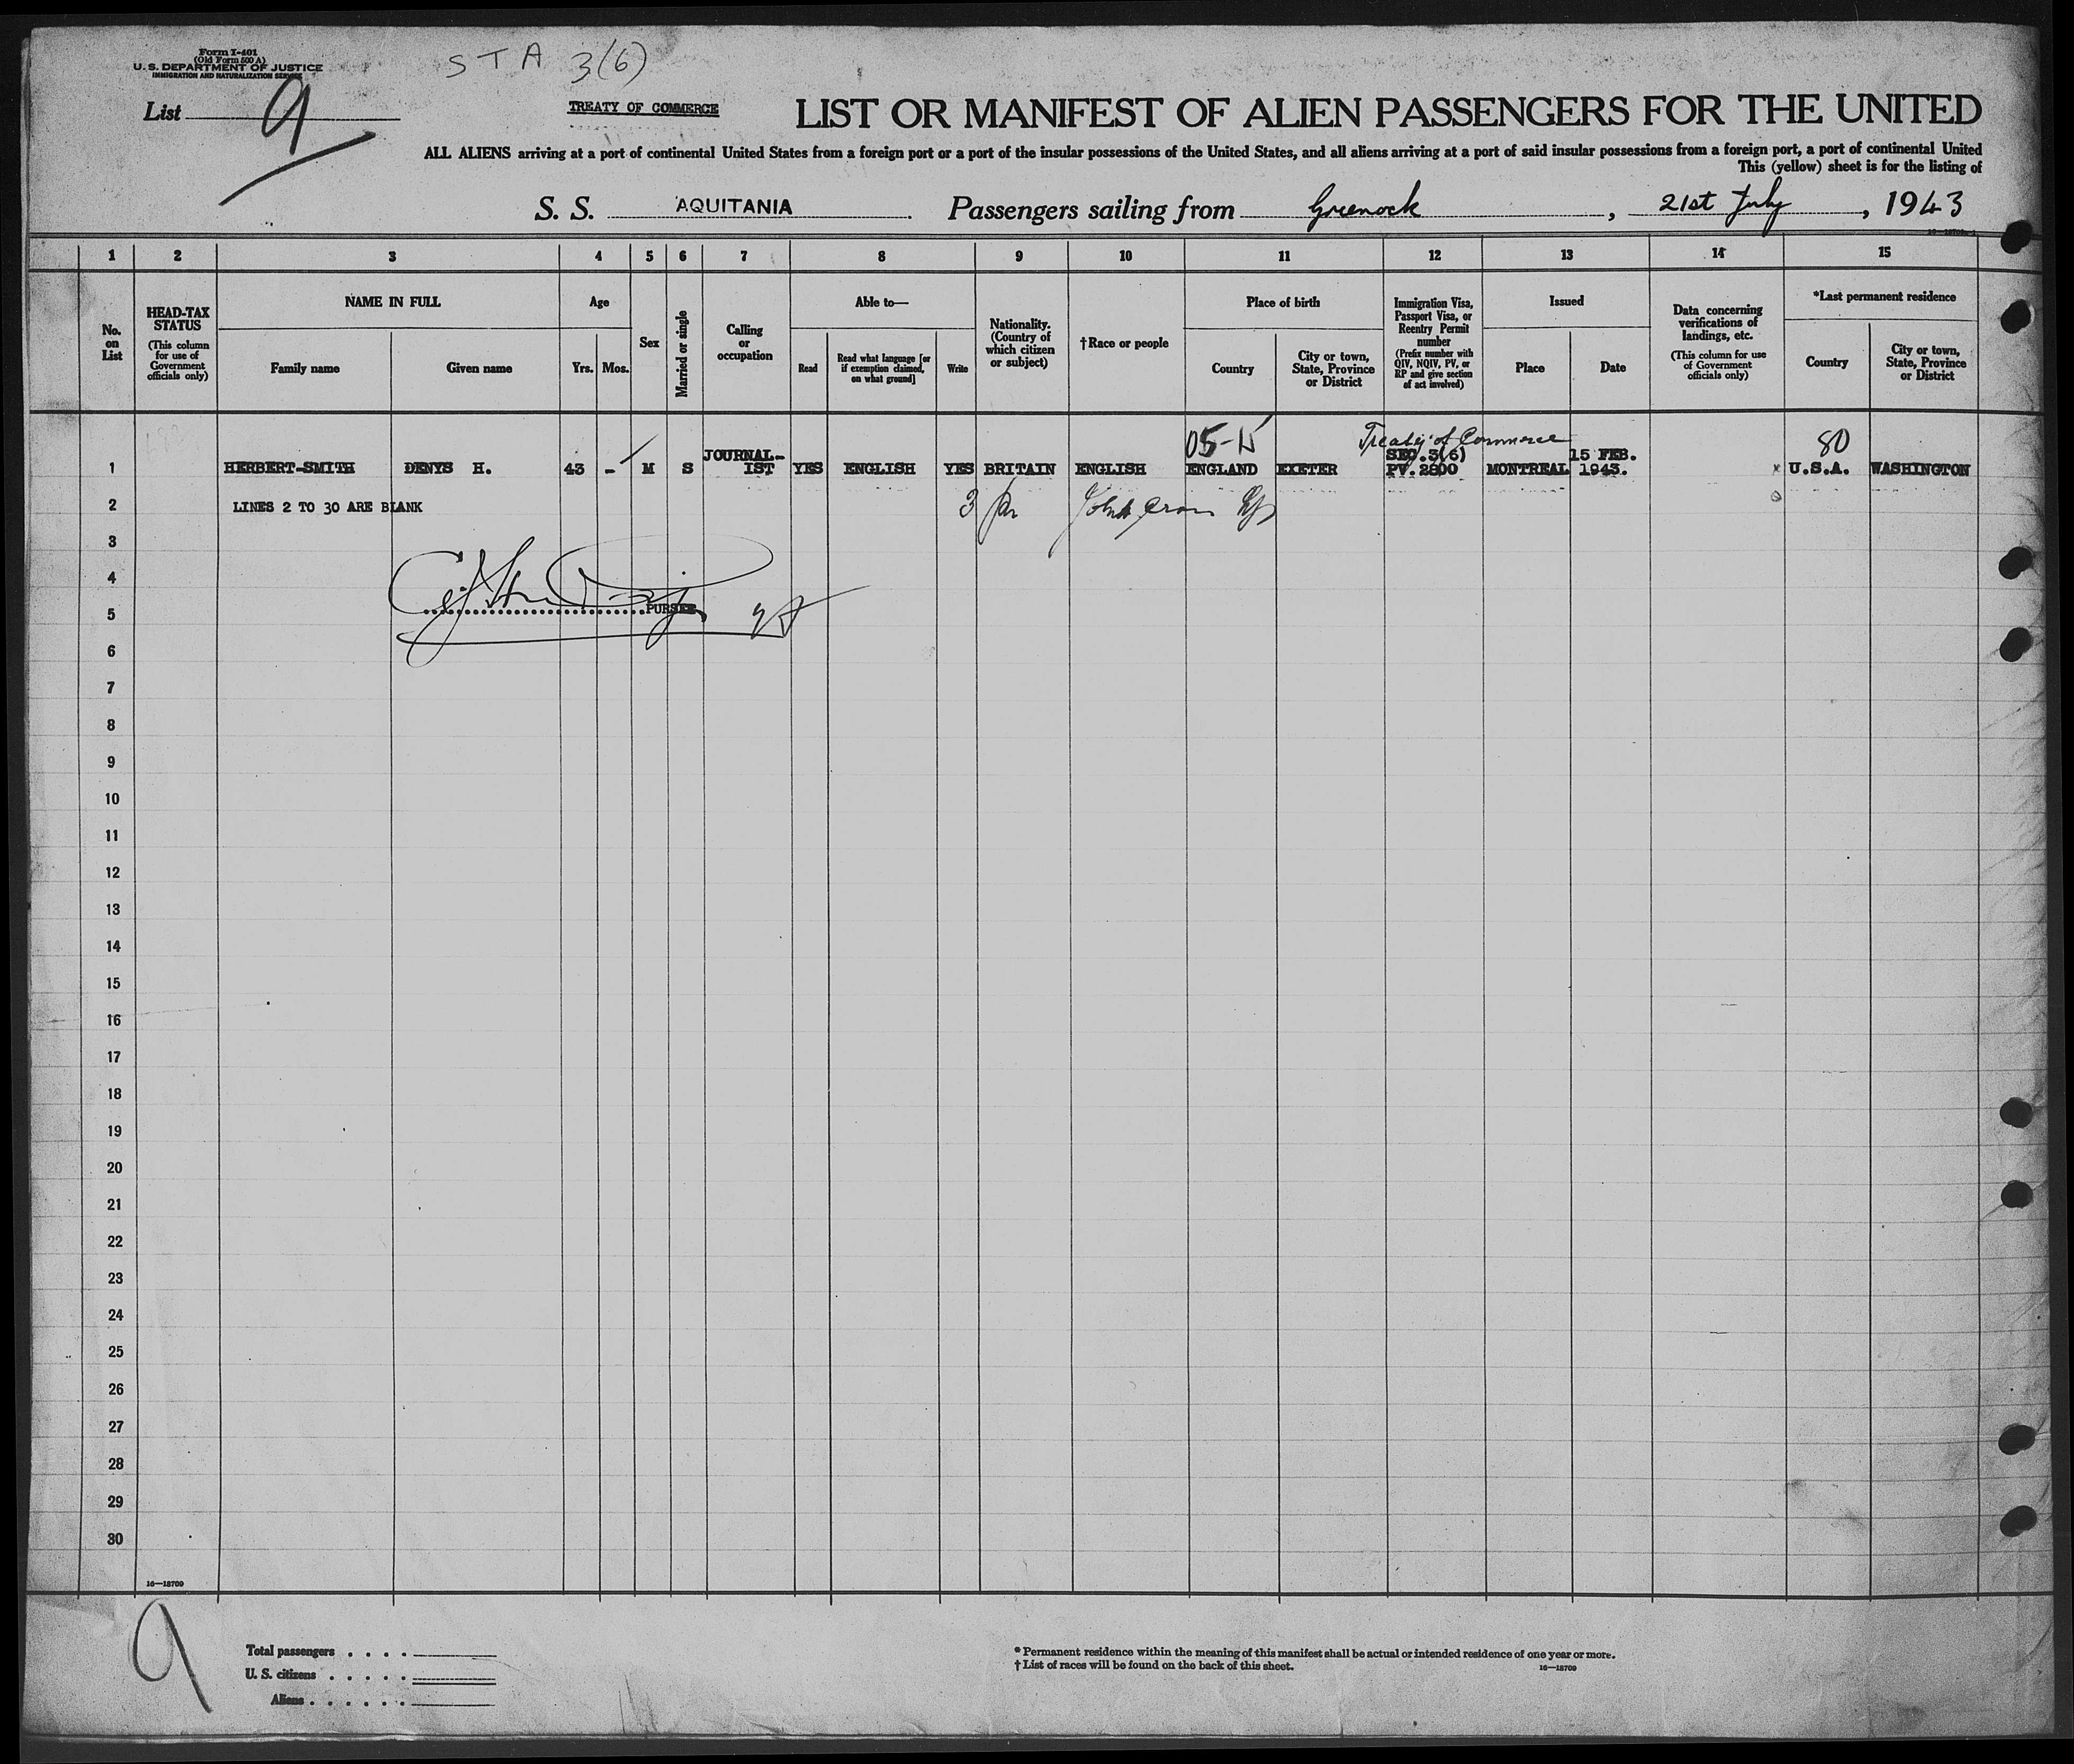 Form I-401
(Old Form 500 A)
U. S. DEPARTMENT OF JUSTICE
IMMIGRATION AND NATURALIZATION SERVICE
STA 3(6)
List 9
TREATY OF COMMERCE
LIST OR MANIFEST OF ALIEN PASSENGERS FOR THE UNITED
ALL ALIENS arriving at a port of continental United States from a foreign port or a port of the insular possessions of the United States, and all aliens arriving at a port of said insular possessions from a foreign port, a port of continental United
This (yellow) sheet is for the listing of
S. S. AQUITANIA Passengers sailing from Greenock, 21st July, 1943
1 2 3 4 5 6 7 8 9 10 11 12 13 14 15
No. on List
HEAD-TAX STATUS (This column for use of Government officials only)
NAME IN FULL
Family name
Given name
Age
Yrs. Mos.
Sex
Married or single
Calling or occupation
Able to—
Read
Read what language [or if exemption claimed, on what ground]
Write
Nationality. (Country of which citizen or subject)
†Race or people
Place of birth
Country
City or town, State, Province or District
Immigration Visa, Passport Visa, or Reentry Permit number (Prefix number with QIV, NQIV, PV, or RP and give section of act involved)
Issued
Place
Date
Data concerning verifications of landings, etc. (This column for use of Government officials only)
*Last permanent residence
Country
City or town, State, Province or District
Treaty of Commerce
80
1 HERBERT-SMITH DENYS H. 43 - M S JOURNAL-IST YES ENGLISH YES BRITAIN ENGLISH ENGLAND EXETER SEC.3(6) PV.2800 MONTREAL 15 FEB. 1943. x U.S.A. WASHINGTON
2 LINES 2 TO 30 ARE BLANK
3
4
5 PURSER
6
7
8
9
10
11
12
13
14
15
16
17
18
19
20
21
22
23
24
25
26
27
28
29
30
16—18709
9
Total passengers
U. S. citizens
Aliens
* Permanent residence within the meaning of this manifest shall be actual or intended residence of one year or more.
† List of races will be found on the back of this sheet.
16—18709